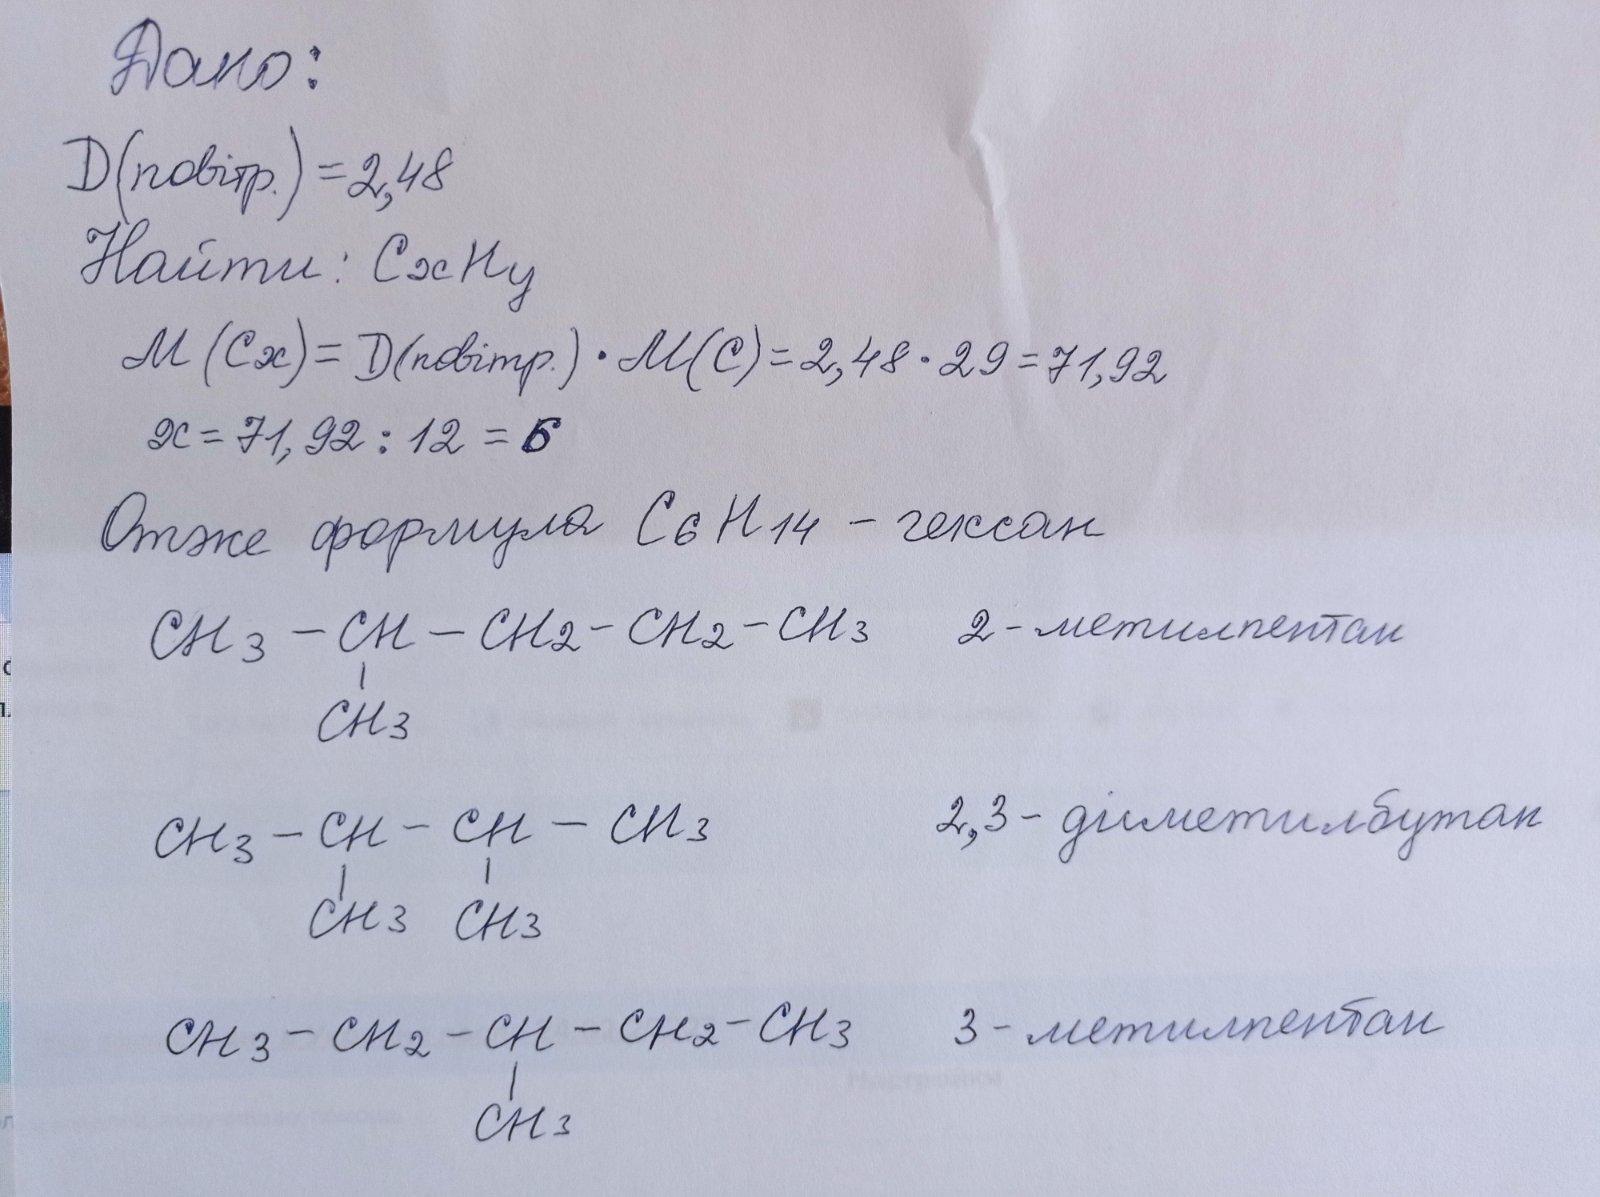 Дано:
D(повітр.) = 2,48
Найти: CxHy
M(Cx) = D(повітр.) · M(C) = 2,48 · 29 = 71,92
x = 71,92 : 12 = 6
Отже формула C6H14 – гексан
CH3 – CH – CH2 – CH2 – CH3 2-метилпентан
CH3
CH3 – CH – CH – CH3 2,3-диметилбутан
CH3 CH3
CH3 – CH2 – CH – CH2 – CH3 3-метилпентан
Настройки
CH3